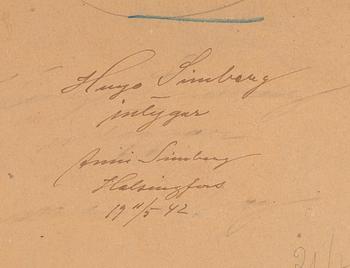 Hugo Simberg
intygar
Anni Simberg
Helsingfors
19 11/5 42